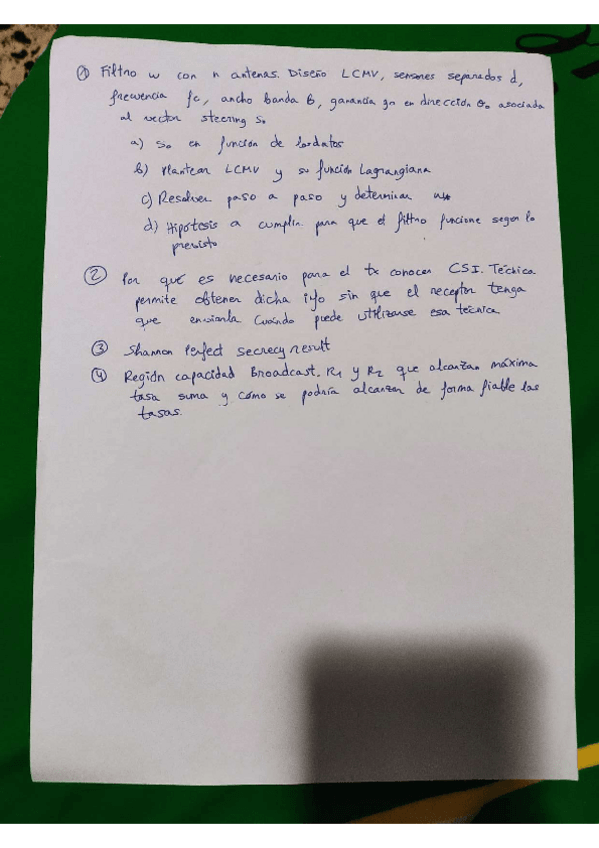 ① Filtro w con n antenas. Diseño LCMV, sensores separados d,
frecuencia fc, ancho banda B, ganancia g0 en dirección θ0 asociada
al vector steering S0
a) S0 en función de los datos
b) Plantear LCMV y su función Lagrangiana
c) Resolver paso a paso y determinar
d) Hipótesis a cumplir para que el filtro funcione segun lo
previsto
② Por qué es necesario para el tx conocer CSI. Técnica
permite obtener dicha info sin que el receptor tenga
que enviarla. Cuándo puede utilizarse esa técnica
③ Shannon Perfect secrecy result
④ Región capacidad Broadcast. R1 y R2 que alcanzan máxima
tasa suma y cómo se podría alcanzar de forma fiable las
tasas.